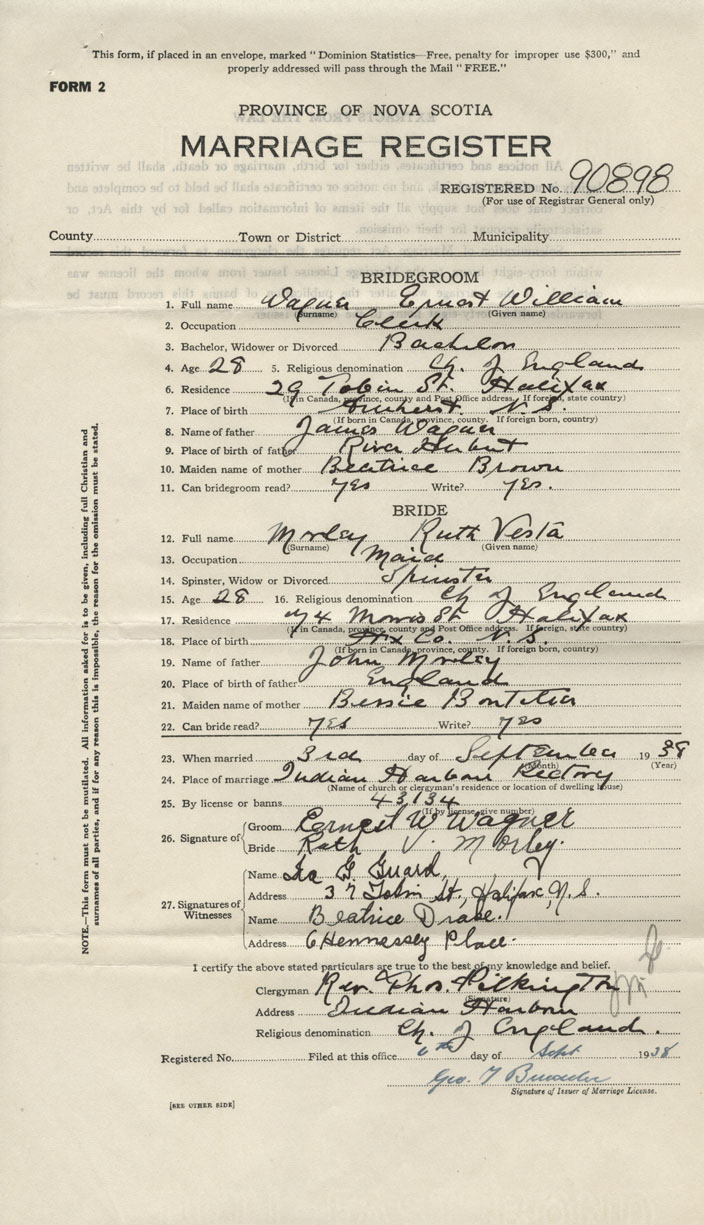 This form, if placed in an envelope, marked "Dominion Statistics—Free, penalty for improper use $300," and
properly addressed will pass through the Mail "FREE."
FORM 2
PROVINCE OF NOVA SCOTIA
MARRIAGE REGISTER
REGISTERED No. 90898
(For use of Registrar General only)
County Town or District Municipality
BRIDEGROOM
1. Full name Wagner Ernest William
(Surname) (Given name)
2. Occupation Clerk
3. Bachelor, Widower or Divorced Bachelor
4. Age 28 5. Religious denomination Ch. of England
6. Residence 29 Tobin St. Halifax
(If in Canada, province, county and Post Office address. If foreign, state country)
7. Place of birth Amherst N.S.
(If born in Canada, province, county. If foreign born, country)
8. Name of father James Wagner
9. Place of birth of father River Hebert
10. Maiden name of mother Beatrice Brown
11. Can bridegroom read? yes Write? yes.
BRIDE
12. Full name Morley Ruth Vesta
(Surname) (Given name)
13. Occupation Maid
14. Spinster, Widow or Divorced Spinster
15. Age 28 16. Religious denomination Ch of England
17. Residence 74 Morris St Halifax
(If in Canada, province, county and Post Office address. If foreign, state country)
18. Place of birth Hfx Co. N.S.
(If born in Canada, province, county. If foreign born, country)
19. Name of father John Morley
20. Place of birth of father England
21. Maiden name of mother Bessie
22. Can bride read? yes Write? yes
23. When married 3rd day of September 1938
(Month) (Year)
24. Place of marriage Indian Harbour Rectory
(Name of church or clergyman's residence or location of dwelling house)
25. By license or banns 43134
(If by license, give number)
26. Signature of
Groom Ernest W Wagner
Bride Ruth V. Morley.
27. Signatures of Witnesses
Name G. Guard,
Address 37 Tobin St., Halifax, N.S.
Name Beatrice Drake.
Address 6 Hennessey Place.
I certify the above stated particulars are true to the best of my knowledge and belief.
Clergyman Rev. Thos. Pilkington
(Signature)
Address Indian Harbour
Religious denomination Ch. of England.
Registered No. Filed at this office 6th day of Sept 1938
Geo. T
Signature of Issuer of Marriage License.
[SEE OTHER SIDE]
NOTE.—This form must not be mutilated. All information asked for is to be given, including full Christian and
surnames of all parties, and if for any reason this is impossible, the reason for the omission must be stated.